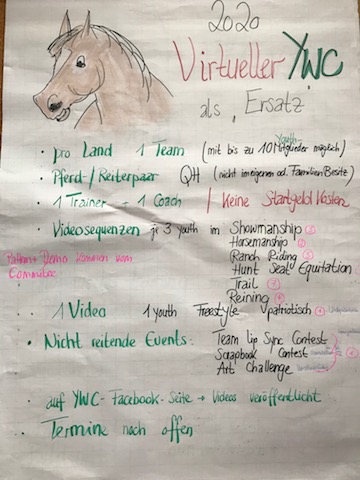 2020
Virtueller YWC
als „Ersatz"
• pro Land 1 Team (mit bis zu 10 Youth-Mitglieder möglich)
• Pferd-/Reiterpaar QH (nicht im eigenen od. Familien Besitz)
• 1 Trainer + 1 Coach / Keine Startgeld Kosten
• Videosequenzen je 3 Youth im Showmanship
Horsemanship
Pattern + Demo kommen vom Commitee
Ranch Riding
Hunt Seat Equitation
Trail
Reining
• 1 Video 1 Youth Freestyle patriotisch
• Nicht reitende Events: Team Lip Sync Contest
Scrapbook Contest
Art Challenge
• auf YWC-Facebook-Seite → Videos veröffentlicht
• Termine noch offen